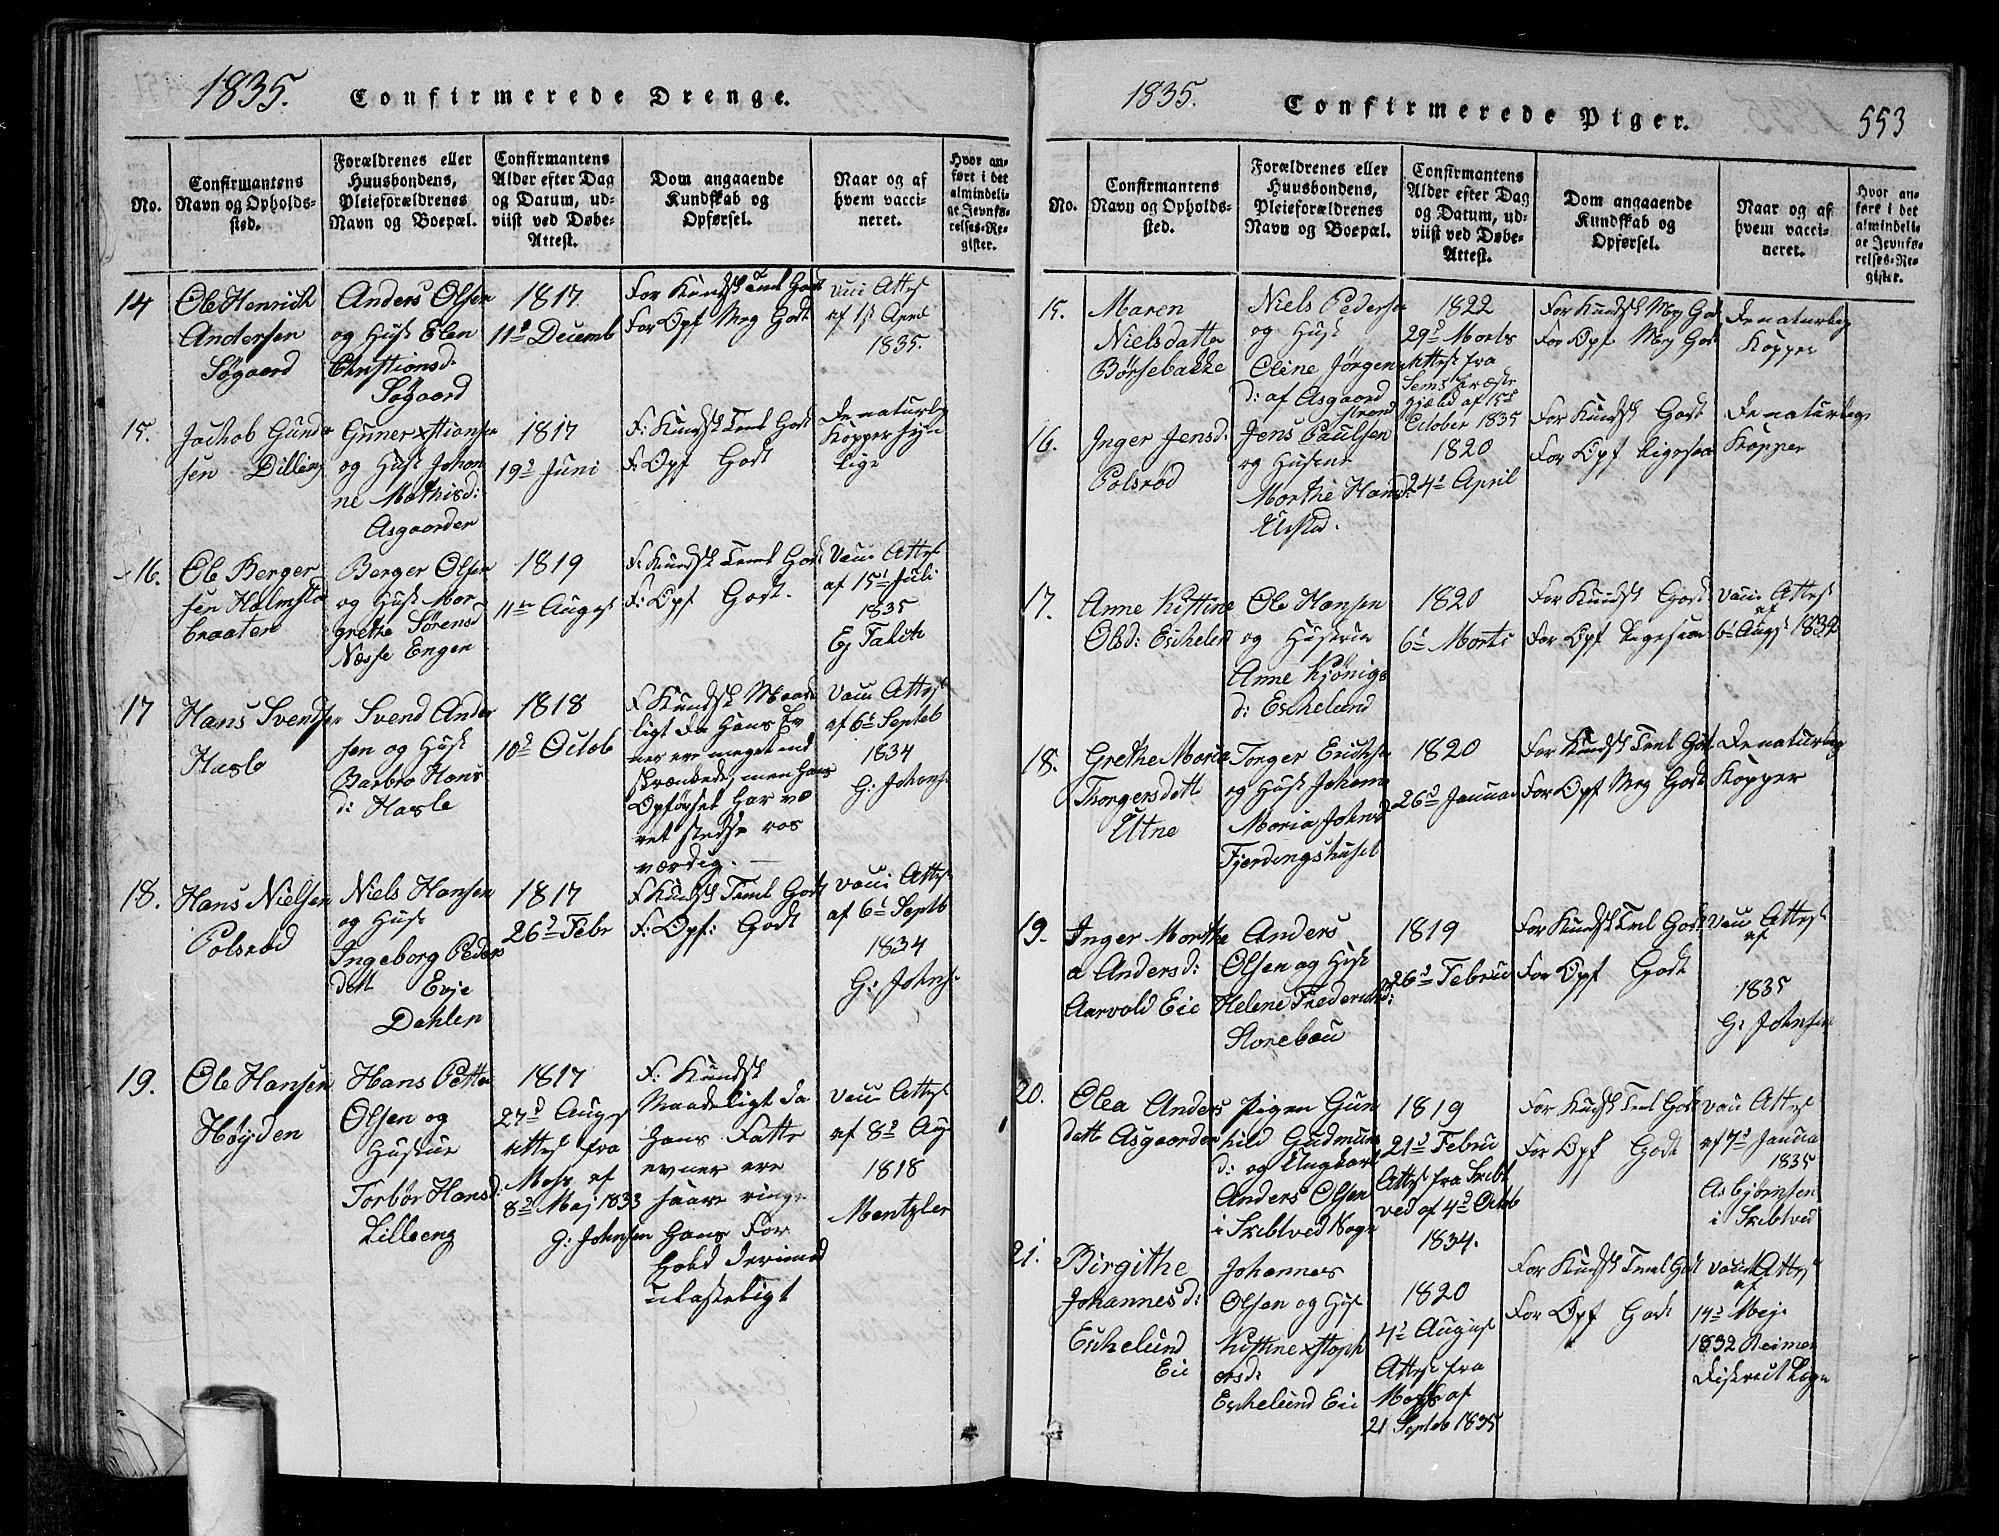 1835.
Confirmerede Drenge.
No.
Confirmantens
Navn og Opholds-
sted.
Forældrenes eller
Huusbondens,
Pleieforældrenes
Navn og Boepæl.
Confirmantens
Alder efter Dag
og Datum, ud-
viist ved Døbe-
Attest.
Dom angaaende
Kundskab og
Opførsel.
Naar og af
hvem vacci-
neret.
Hvor an-
ført i det
almindeli-
ge Jevnfø-
relses-Re-
gister.
14
Ole Henrich
Andersen
Søgaard
Anders Olsen
og Hust Elen
Christionsd:
Søgaard
1817
11te Decemb
For Kundsk Teml Godt
For Opf Meg Godt
Vacc Attest
af 1st April
1835.
15.
Jachob Gunder
sen Dilling
Gunner xstiansen
og Hust Johan
ne Mathisd:
Asgaarden
1817
19d Juni
F: Kundsk Teml Godt
F: Opf Godt
De naturlig
Kopper syn
lige
16.
Ole Berger
sen Halmstd
braaten
Berger Olsen
og Hust Mar
grethe Sørensd
Næsse Engen
1819
11te August
F: Kundsk Teml Godt
F: Opf Godt.
Vacc Attest
af 15d Juli
1835
Ej Falch
17
Hans Svendsen
Haslo
Svend Ander
sen og Hust
Barbro Hans
d: Hasle
1818
10d Octob
F Kundsk Maade
ligt da Hans Ev
ner ere meget ind
skrænkede, men Hans
Opførsel har væ
ret stedse ros
værdig.
Vacc Attest
af 6d Septeb
1834
G: Johnsen
18.
Hans Nielsen
Polsrød
Niels Hansen
og Hust
Ingeborg Peders
datt Evje
Dahlen
1817
26d Febr
F Kundsk Teml Godt
F: Opf: Godt
Vacci Attest
af 6d Septb
1834
G: Johnsen
19.
Ole Hansen
Høyden
Hans Petter
Olsen og
Hustrue
Torbør Hansd:
Lilleeng
1817
27d August
Attest fra
Moss af
8d Maj 1833
G: Johnsen
F: Kundsk
Maadeligt da
Hans Fatte
evner ere
saare ringe
Hans For
hold derimod
ulasteligt
Vacc Attest
af 8d Aug
1818
Mentzler
1835.
Confirmerede Piger.
553
No.
Confirmantens
Navn og Opholds-
sted.
Forældrenes eller
Huusbondens,
Pleieforældrenes
Navn og Boepæl.
Confirmantens
Alder efter Dag
og Datum, ud-
viist ved Døbe-
Attest.
Dom angaaende
Kundskab og
Opførsel.
Naar og af
hvem vacci-
neret.
Hvor an-
ført i det
almindeli-
ge Jevnfø-
relses-Re-
gister.
15.
Maren
Nielsdatter
Börsebakke
Niels Pedersen
og Hust
Eline Jörgen
d: af Asgaard
strand
1822
29d Morts
Attest fra
Sems Præste
gjæld af 15d
October 1835
For Kundsk Meg Godt
For Opf Meg Godt
De naturlig
Kopper
16.
Inger Jensd:
Polsrød
Jens Paulsen
og Hustrue
Morthe Hansd:
1820
24d April
For Kundsk Godt
For Opf Ligesaa
De naturlige
Kopper
17.
Anne Kistine
Olsd: Eschelen
Ole Hansen
og Hustrue
Anne Kjönigs
d: Eschelund
1820
6d Morts
For Kundsk Godt
For Opf Ligesaa
Vacc Attest
af
6d Augst 1834
18.
Grethe Maria
Thorgersdatt
Utne
Torger Erichsen
og Hust Johanne
Maria Johnsd
Fjerdingshuset
1820
26d Januar
For Kundsk Teml Godt
For Opf Meg Godt
De naturlig
Kopper
19.
Inger Morthe
a Andersd:
Aarvold Eie
Anders
Olsen og Hust
Helene Frederichsd:
Storebou
1819
26d Februar
For Kundsk Teml Godt
For Opf Godt
Vacc Attest
af
1835
G: Johnsen
20.
Olea Anders
datt Asgaarden
Pigen Gun
hild Gudmuns
d: og Ungkarl
Anders Olsen
i Skibtved Sogn
1819
21d Februar
Attest fra Skibt
ved af 4d Octob
1834.
For Kundsk Teml Godt
For Opf Godt
Vacc Attest
af 7d Januar
1835
Asbjørnsen
i Skibtved
21.
Birgithe
Johannesd:
Eschelund
Eie
Johannes
Olsen og Hust
Kistine xstoph
ersd:
Eschelund Eie
1820
4d August
Attest fra
Moss af
21 Septeb 1835
For Kundsk Teml Godt
For Opf Godt
Vacc Attest
af
14d Maj
1832 Reimer